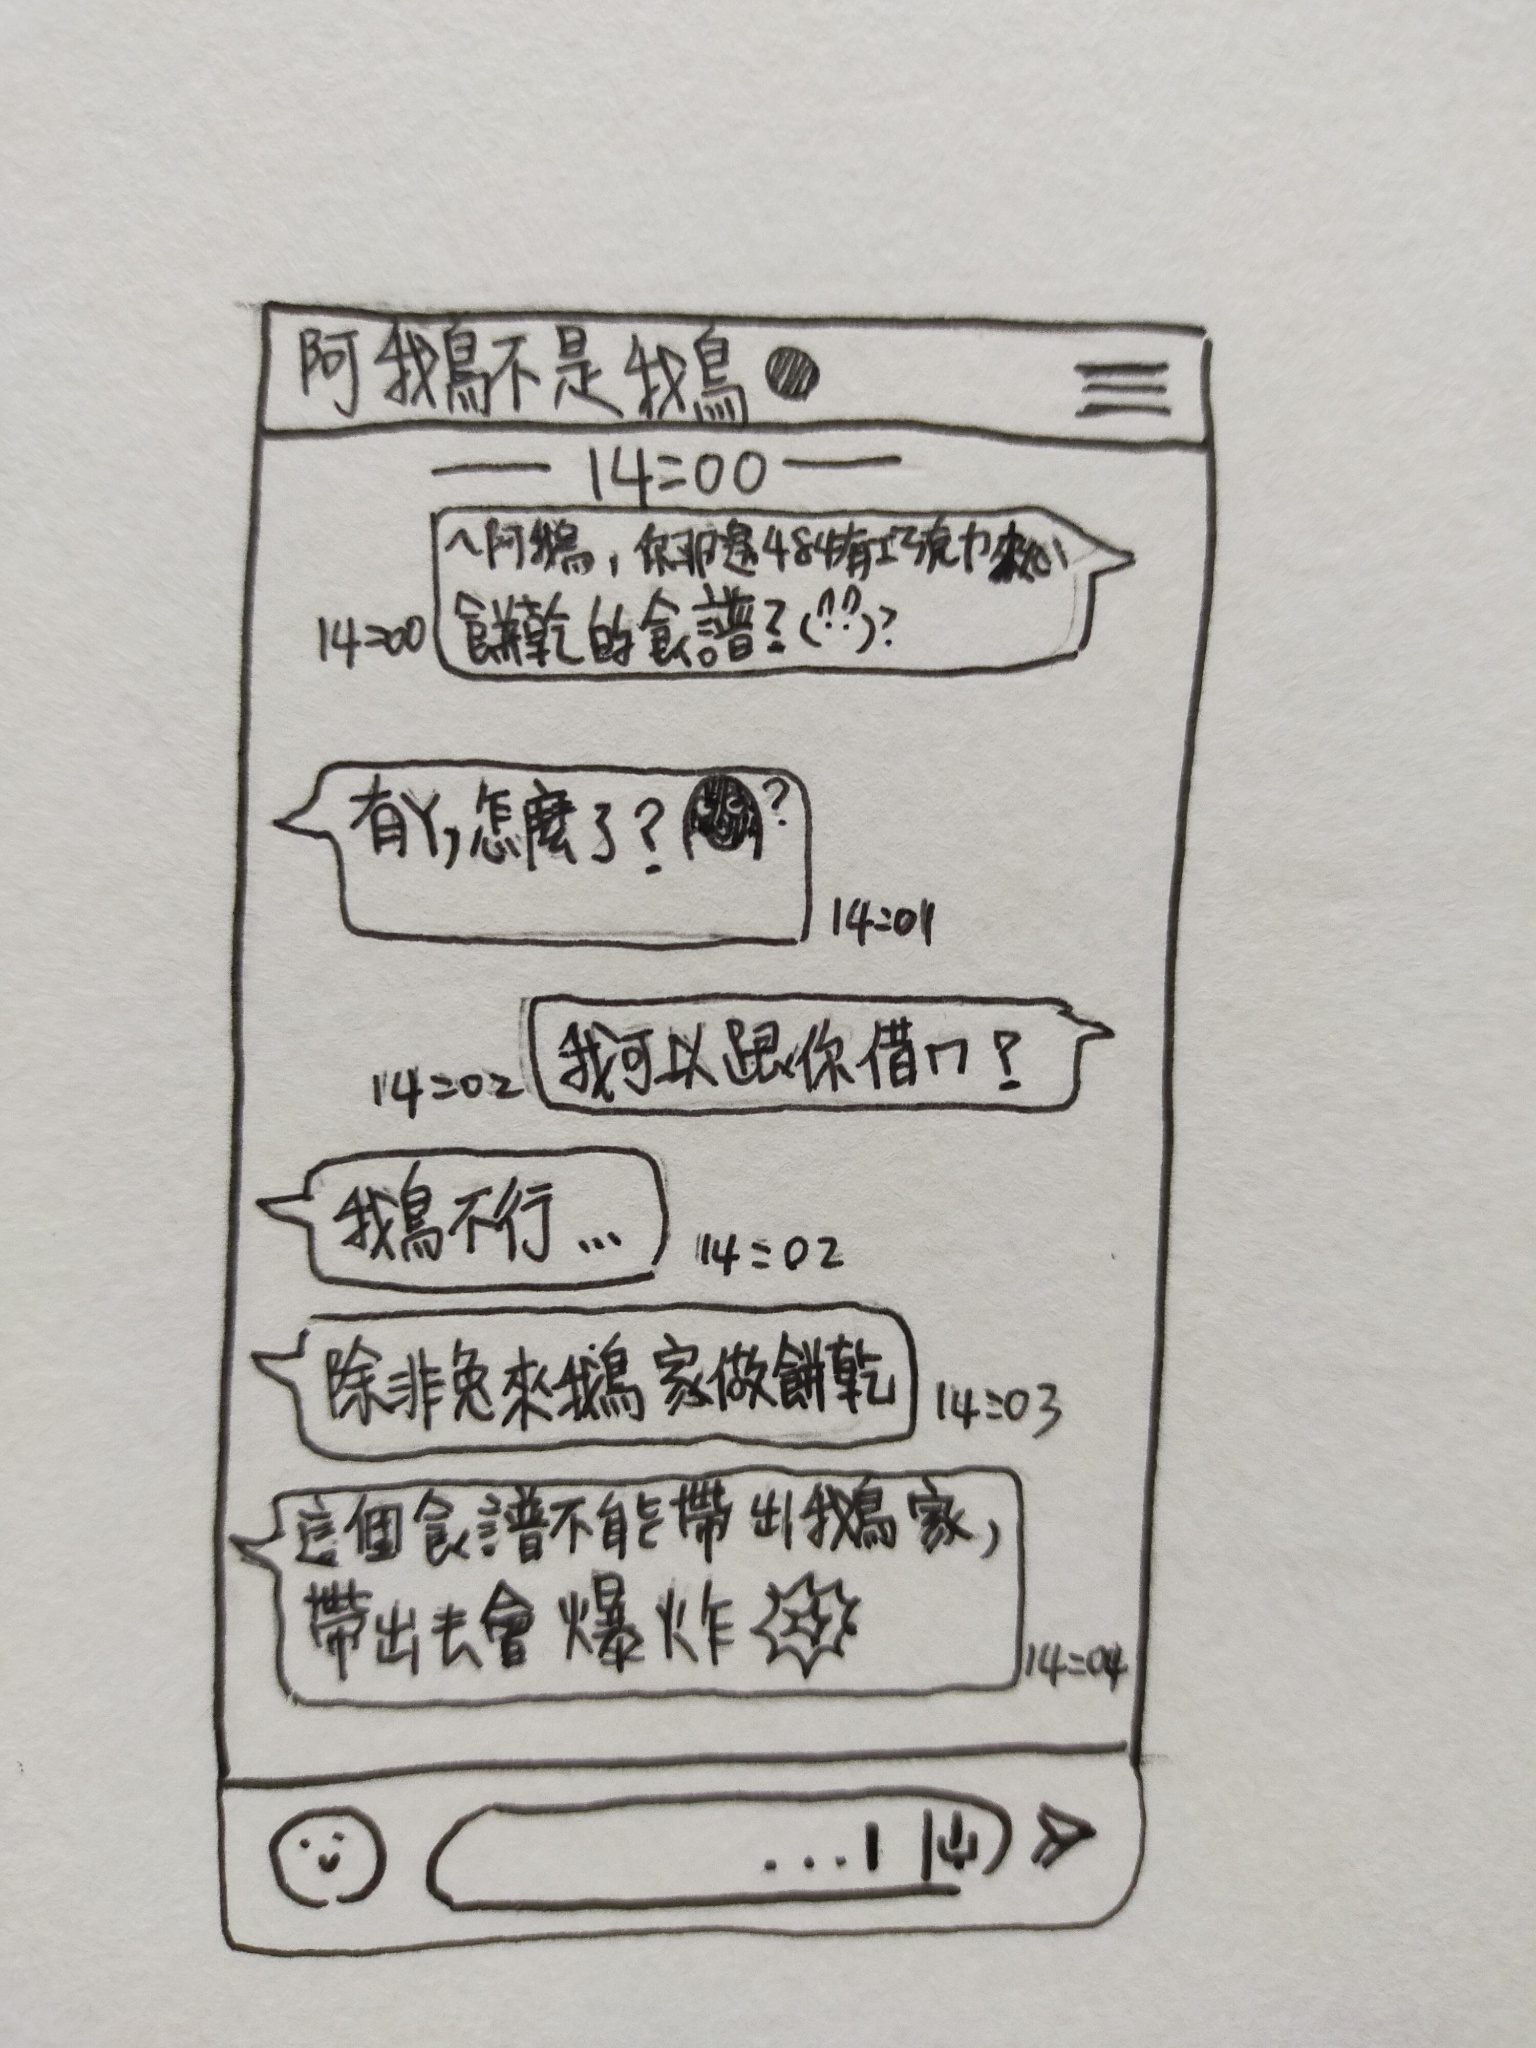 阿鵝不是鵝
14:00
~阿鵝，你那邊484有巧克力
餅乾的食譜？(??)?
14:00
有丫,怎麼了？?
14:01
我可以跟你借ㄇ？
14:02
鵝不行...
14:02
除非兔來鵝家做餅乾
14:03
這個食譜不能帶出鵝家,
帶出去會爆炸
14:04
...